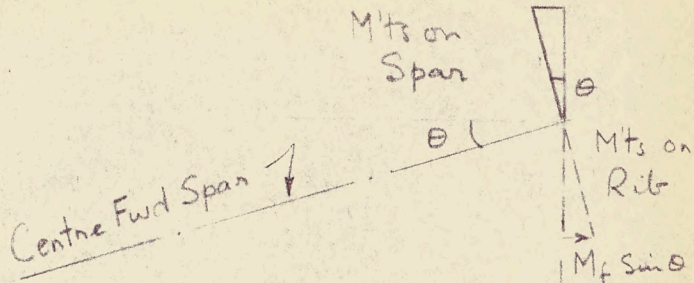 M'ts on
Spar
θ
θ
M'ts on
Rib
Centre Fwd Spar
M_f Sin θ